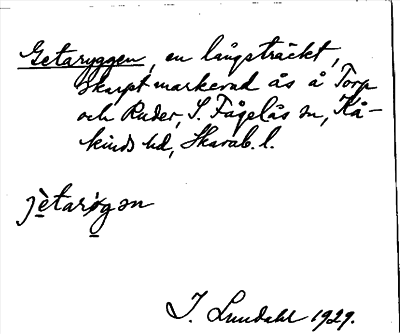 Getaryggen, en långsträckt,
skarpt markerad ås å Torp
och Ruder, S. Fågelås sn, Kå-
kinds hd, Skarab. l.
jètarỳgən
I. Lundahl 1929.